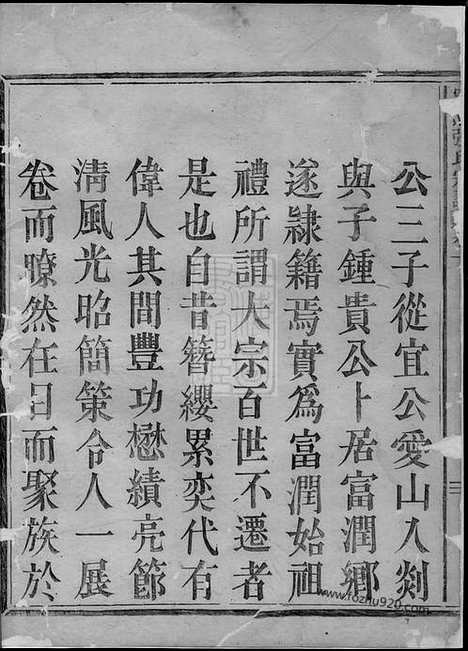 公三子從宜公愛山入剡
與子鍾貴公卜居富潤鄉
遂隸籍焉實為富潤始祖
禮所謂大宗百世不遷者
是也自昔簪纓累奕代有
偉人其間豐功懋績亮節
清風光昭簡策令人一展
卷而暸然在目而聚族於
www.fozhu920.com